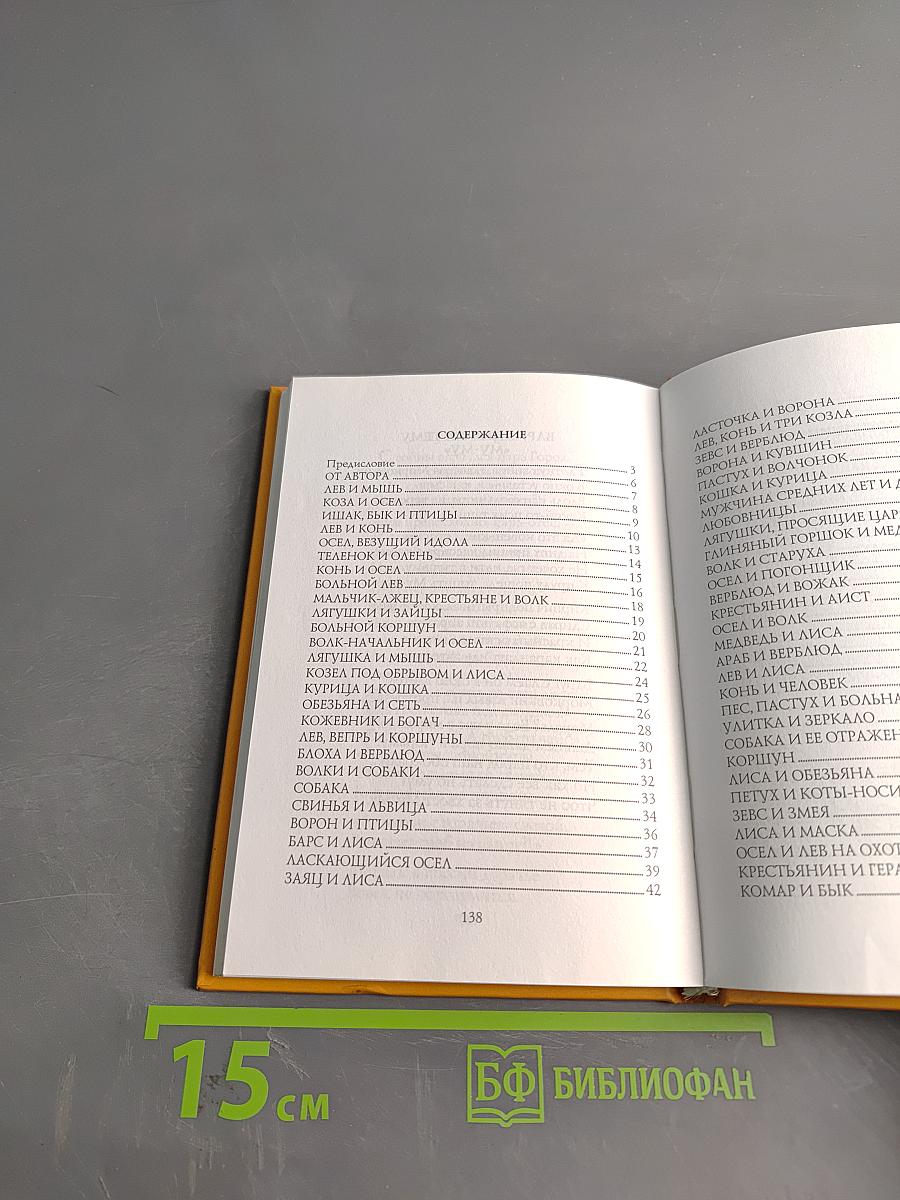 СОДЕРЖАНИЕ
Предисловие 3
ОТ АВТОРА 6
ЛЕВ И МЫШЬ 7
КОЗА И ОСЕЛ 8
ИШАК, БЫК И ПТИЦЫ 9
ЛЕВ И КОНЬ 10
ОСЕЛ, ВЕЗУЩИЙ ИДОЛА 13
ТЕЛЕНОК И ОЛЕНЬ 14
КОНЬ И ОСЕЛ 15
БОЛЬНОЙ ЛЕВ 16
МАЛЬЧИК-ЛЖЕЦ, КРЕСТЬЯНЕ И ВОЛК 18
ЛЯГУШКИ И ЗАЙЦЫ 19
БОЛЬНОЙ КОРШУН 20
ВОЛК-НАЧАЛЬНИК И ОСЕЛ 21
ЛЯГУШКА И МЫШЬ 22
КОЗЕЛ ПОД ОБРЫВОМ И ЛИСА 24
КУРИЦА И КОШКА 25
ОБЕЗЬЯНА И СЕТЬ 26
КОЖЕВНИК И БОГАЧ 28
ЛЕВ, ВЕПРЬ И КОРШУНЫ 30
БЛОХА И ВЕРБЛЮД 31
ВОЛКИ И СОБАКИ 32
СОБАКА 33
СВИНЬЯ И ЛЬВИЦА 34
ВОРОН И ПТИЦЫ 36
БАРС И ЛИСА 37
ЛАСКАЮЩИЙСЯ ОСЕЛ 39
ЗАЯЦ И ЛИСА 42
138
ЛАСТОЧКА И ВОРОНА
ЛЕВ, КОНЬ И ТРИ КОЗЛА
ЗЕВС И ВЕРБЛЮД
ВОРОНА И КУВШИН
ПАСТУХ И ВОЛЧОНОК
КОШКА И КУРИЦА
МУЖЧИНА СРЕДНИХ ЛЕТ И
ЛЮБОВНИЦЫ
ЛЯГУШКИ, ПРОСЯЩИЕ ЦАР
ГЛИНЯНЫЙ ГОРШОК И МЕД
ВОЛК И СТАРУХА
ОСЕЛ И ПОГОНЩИК
ВЕРБЛЮД И ВОЖАК
КРЕСТЬЯНИН И АИСТ
ОСЕЛ И ВОЛК
МЕДВЕДЬ И ЛИСА
АРАБ И ВЕРБЛЮД
ЛЕВ И ЛИСА
КОНЬ И ЧЕЛОВЕК
ПЕС, ПАСТУХ И БОЛЬНА
УЛИТКА И ЗЕРКАЛО
СОБАКА И ЕЕ ОТРАЖЕН
КОРШУН
ЛИСА И ОБЕЗЬЯНА
ПЕТУХ И КОТЫ-НОСИ
ЗЕВС И ЗМЕЯ
ЛИСА И МАСКА
ОСЕЛ И ЛЕВ НА ОХОТ
КРЕСТЬЯНИН И ГЕРА
КОМАР И БЫК
15 СМ
БФ БИБЛИОФАН